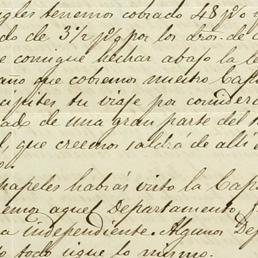 gles tenemos cobrado 48 p% y
do de 3½ p% por los dros. de
e consigue hechar abajo la le
año que cobremos nuestro Cap
cipites tu viaje por considera
ado de una gran parte del
l, que creemos saldrá de alli
o.
papeles habrás visto la Capi
emos aquel Departamento,
a independiente. Algunos Dep
o todo sigue lo mismo.